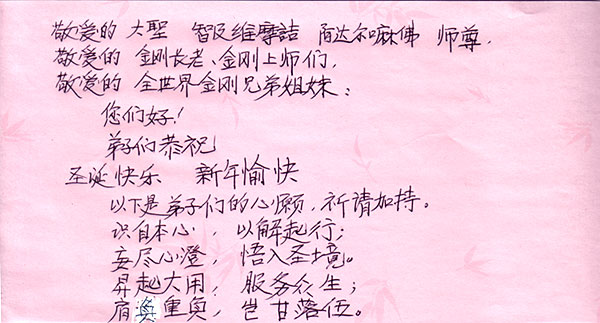 敬爱的 大聖 智及维摩詰 阿达尔嘛佛 师尊,
敬爱的 金刚长老、金刚上师们,
敬爱的 全世界金刚兄弟姐妹:
您们好!
弟子们恭祝
圣诞快乐 新年愉快
以下是弟子们的心愿,祈请加持。
识自本心,以解起行;
妄尽心澄,悟入圣境。
昇起大用,服务众生;
肩 重负,岂甘落伍。